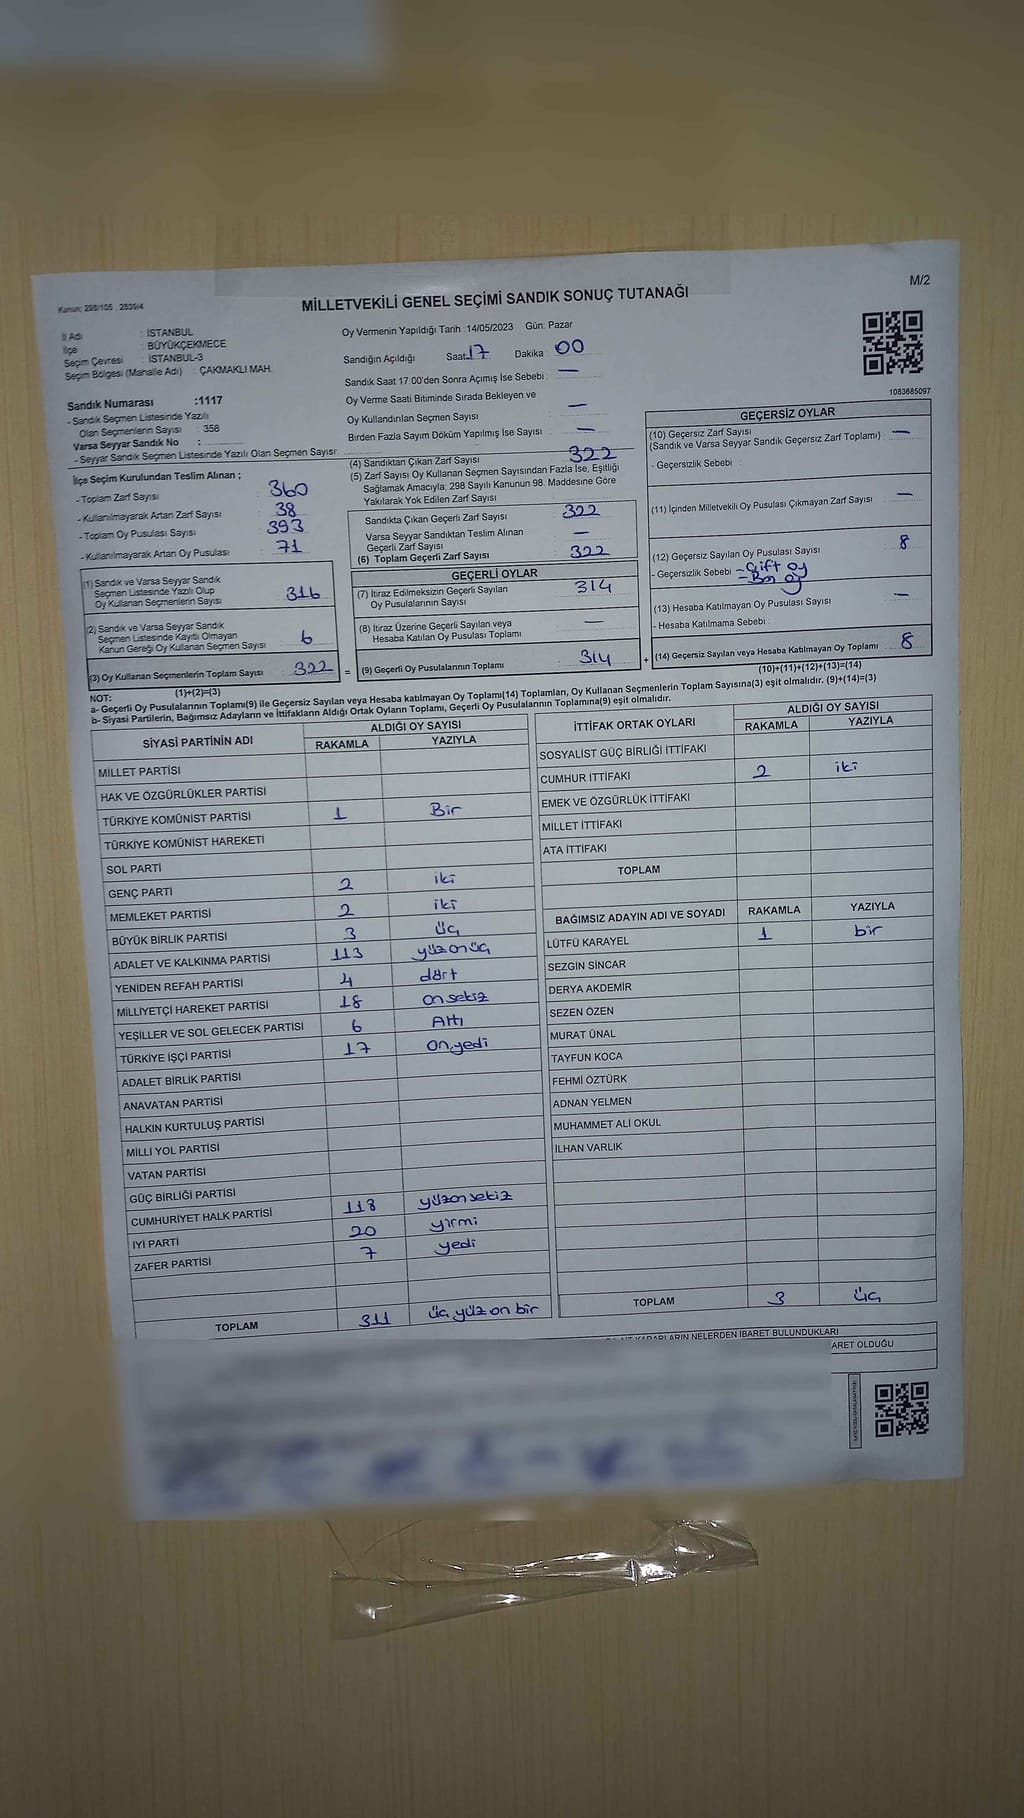 M/2
Kanun: 298/105 . 2839/4
MİLLETVEKİLİ GENEL SEÇİMİ SANDIK SONUÇ TUTANAĞI
İl Adı : İSTANBUL
İlçe : BÜYÜKÇEKMECE
Seçim Çevresi : İSTANBUL-3
Seçim Bölgesi (Mahalle Adı) : ÇAKMAKLI MAH.
Sandık Numarası :1117
- Sandık Seçmen Listesinde Yazılı
Olan Seçmenlerin Sayısı : 358
Varsa Seyyar Sandık No :
- Seyyar Sandık Seçmen Listesinde Yazılı Olan Seçmen Sayısı:
Oy Vermenin Yapıldığı Tarih :14/05/2023 Gün: Pazar
Sandığın Açıldığı Saat 17 Dakika : 00
Sandık Saat 17.00'den Sonra Açımış İse Sebebi : —
Oy Verme Saati Bitiminde Sırada Bekleyen ve
Oy Kullandırılan Seçmen Sayısı : —
Birden Fazla Sayım Döküm Yapılmış İse Sayısı : —
1083685097
İlçe Seçim Kurulundan Teslim Alınan ;
- Toplam Zarf Sayısı : 360
- Kullanılmayarak Artan Zarf Sayısı : 38
- Toplam Oy Pusulası Sayısı : 393
- Kullanılmayarak Artan Oy Pusulası : 71
(1) Sandık ve Varsa Seyyar Sandık
Seçmen Listesinde Yazılı Olup
Oy Kullanan Seçmenlerin Sayısı : 316
(2) Sandık ve Varsa Seyyar Sandık
Seçmen Listesinde Kayıtlı Olmayan
Kanun Gereği Oy Kullanan Seçmen Sayısı : 6
(3) Oy Kullanan Seçmenlerin Toplam Sayısı : 322 =
(1)+(2)=(3)
(4) Sandıktan Çıkan Zarf Sayısı : 322
(5) Zarf Sayısı Oy Kullanan Seçmen Sayısından Fazla İse, Eşitliği
Sağlamak Amacıyla; 298 Sayılı Kanunun 98. Maddesine Göre
Yakılarak Yok Edilen Zarf Sayısı :
Sandıkta Çıkan Geçerli Zarf Sayısı : 322
Varsa Seyyar Sandıktan Teslim Alınan
Geçerli Zarf Sayısı : —
(6) Toplam Geçerli Zarf Sayısı : 322
GEÇERLİ OYLAR
(7) İtiraz Edilmeksizin Geçerli Sayılan
Oy Pusulalarının Sayısı : 314
(8) İtiraz Üzerine Geçerli Sayılan veya
Hesaba Katılan Oy Pusulası Toplamı : —
(9) Geçerli Oy Pusulalarının Toplamı : 314 +
GEÇERSİZ OYLAR
(10) Geçersiz Zarf Sayısı
(Sandık ve Varsa Seyyar Sandık Geçersiz Zarf Toplamı) : —
- Geçersizlik Sebebi :
(11) İçinden Milletvekili Oy Pusulası Çıkmayan Zarf Sayısı : —
(12) Geçersiz Sayılan Oy Pusulası Sayısı : 8
- Geçersizlik Sebebi : - Çift oy
- Boş oy
(13) Hesaba Katılmayan Oy Pusulası Sayısı : —
- Hesaba Katılmama Sebebi :
(14) Geçersiz Sayılan veya Hesaba Katılmayan Oy Toplamı : 8
(10)+(11)+(12)+(13)=(14)
NOT:
a- Geçerli Oy Pusulasının Toplamı(9) ile Geçersiz Sayılan veya Hesaba katılmayan Oy Toplamı(14) Toplamları, Oy Kullanan Seçmenlerin Toplam Sayısına(3) eşit olmalıdır. (9)+(14)=(3)
b- Siyasi Partilerin, Bağımsız Adayların ve İttifakların Aldığı Ortak Oyların Toplamı, Geçerli Oy Pusulalarının Toplamına(9) eşit olmalıdır.
SİYASİ PARTİNİN ADI ALDIĞI OY SAYISI
RAKAMLA YAZIYLA
MİLLET PARTİSİ
HAK VE ÖZGÜRLÜKLER PARTİSİ
TÜRKİYE KOMÜNİST PARTİSİ 1 Bir
TÜRKİYE KOMÜNİST HAREKETİ
SOL PARTİ
GENÇ PARTİ 2 iki
MEMLEKET PARTİSİ 2 iki
BÜYÜK BİRLİK PARTİSİ 3 üç
ADALET VE KALKINMA PARTİSİ 113 yüz on üç
YENİDEN REFAH PARTİSİ 4 dört
MİLLİYETÇİ HAREKET PARTİSİ 18 on sekiz
YEŞİLLER VE SOL GELECEK PARTİSİ 6 Altı
TÜRKİYE İŞÇİ PARTİSİ 17 on yedi
ADALET BİRLİK PARTİSİ
ANAVATAN PARTİSİ
HALKIN KURTULUŞ PARTİSİ
MİLLİ YOL PARTİSİ
VATAN PARTİSİ
GÜÇ BİRLİĞİ PARTİSİ
CUMHURİYET HALK PARTİSİ 118 yüzonsekiz
İYİ PARTİ 20 yirmi
ZAFER PARTİSİ 7 yedi
TOPLAM 311 üç yüz on bir
İTTİFAK ORTAK OYLARI ALDIĞI OY SAYISI
RAKAMLA YAZIYLA
SOSYALİST GÜÇ BİRLİĞİ İTTİFAKI
CUMHUR İTTİFAKI 2 iki
EMEK VE ÖZGÜRLÜK İTTİFAKI
MİLLET İTTİFAKI
ATA İTTİFAKI
TOPLAM
BAĞIMSIZ ADAYIN ADI VE SOYADI RAKAMLA YAZIYLA
LÜTFÜ KARAYEL 1 bir
SEZGİN SİNCAR
DERYA AKDEMİR
SEZEN ÖZEN
MURAT ÜNAL
TAYFUN KOCA
FEHMİ ÖZTÜRK
ADNAN YELMEN
MUHAMMET ALİ OKUL
İLHAN VARLIK
TOPLAM 3 üç
KARARLARIN NELERDEN İBARET BULUNDUKLARI
ARET OLDUĞU